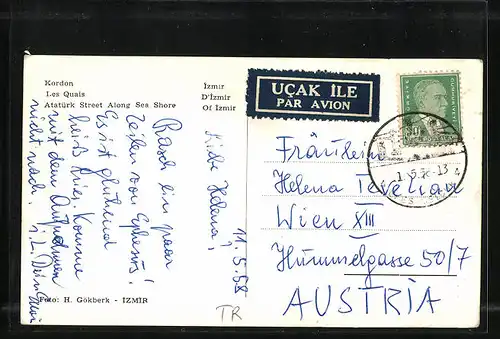 Kordon İzmir
Les Quais D'İzmir
Atatürk Street Along Sea Shore Of İzmir
UÇAK İLE
PAR AVION
11.5.58
Liebe Helena!
Rasch ein paar
Zeilen von Ephesus!
Es ist glühend
heiß hier. Komme
mit dem
nicht nach.
Foto: H. Gökberk - İZMİR
TR
Fräulein
Helena
Wien XIII
Hummelgasse 50/7
AUSTRIA
30